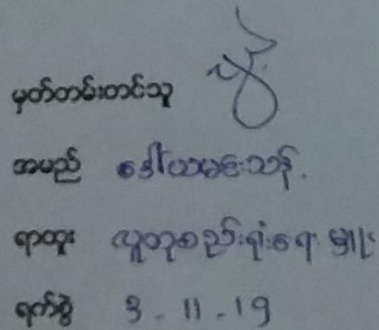 မှတ်တမ်းတင်သူ
အမည် ဒေါ်ယမင်းသန်.
ရာထူး လူထုစည်းရုံးရေး မှူး
ရက်စွဲ 3-11-19